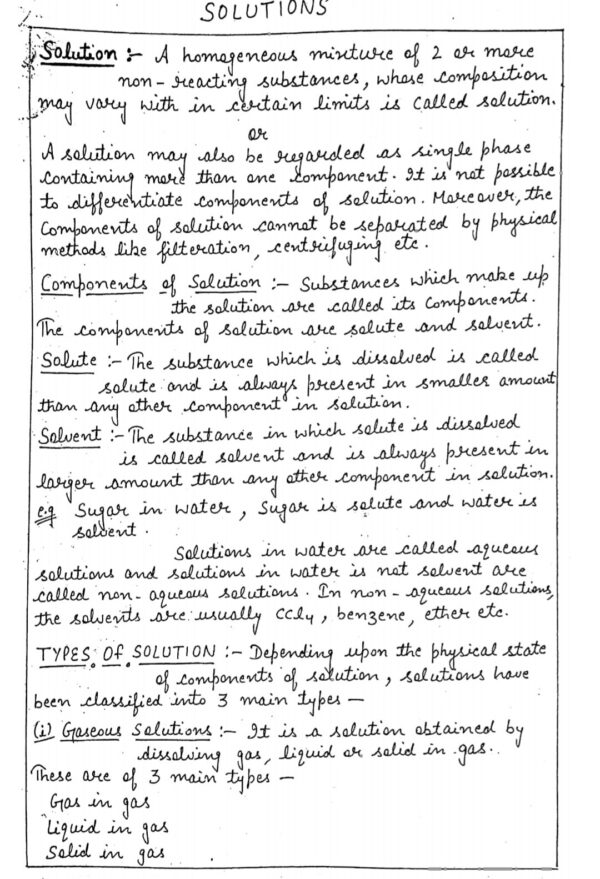 SOLUTIONS
Solution :- A homogeneous mixture of 2 or more
non-reacting substances, whose composition
may vary with in certain limits is called solution.
or
A solution may also be regarded as single phase
containing more than one component. It is not possible
to differentiate components of solution. Moreover, the
Components of solution cannot be separated by physical
methods like filteration, centrifuging etc.
Components of Solution :- Substances which make up
the solution are called its Components.
The components of solution are solute and solvent.
Solute :- The substance which is dissolved is called
solute and is always present in smaller amount
than any other component in solution.
Solvent :- The substance in which solute is dissolved
is called solvent and is always present in
larger amount than any other component in solution.
e.g Sugar in water, Sugar is solute and water is
solvent.
Solutions in water are called aqueous
solutions and solutions in water is not solvent are
called non-aqueous solutions. In non-aqueous solutions,
the solvents are usually CCl4, benzene, ether etc.
TYPES OF SOLUTION :- Depending upon the physical state
of components of solution, solutions have
been classified into 3 main types —
(i) Gaseous Solutions :- It is a solution obtained by
dissolving gas, liquid or solid in gas.
These are of 3 main types —
Gas in gas
Liquid in gas
Solid in gas